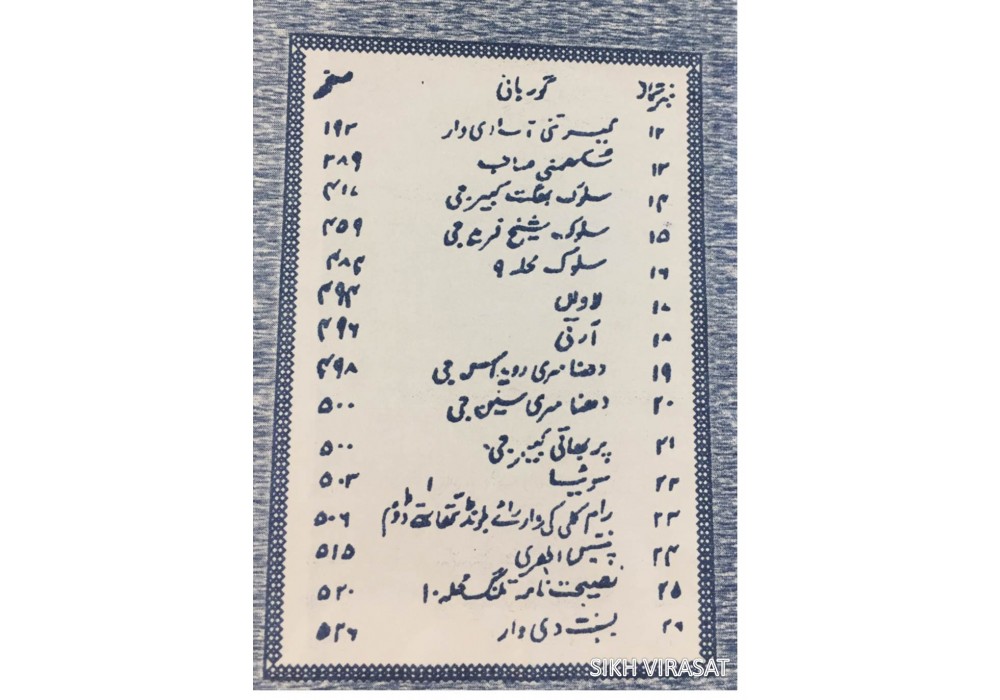 نمبر شمار گوربانی صفحہ
۱۲ کیرتنی آسا دی وار ۱۹۲
۱۳ سُکھمنی صاحب ۲۸۹
۱۴ سلوک بھگت کبیر جی ۴۱۷
۱۵ سلوک شیخ فرید جی ۴۵۹
۱۶ سلوک محلہ ۹ ۴۸۴
۱۷ لاواں ۴۹۴
۱۸ آرتی ۴۹۶
۱۹ دھناسری رویداس جی ۴۹۸
۲۰ دھناسری سین جی ۵۰۰
۲۱ پربھاتی کبیر جی ۵۰۰
۲۲ سوئیا ۵۰۳
۲۳ رام کلی کی وار رائے ۵۰۶
۲۴ پینتیس اکھری ۵۱۵
۲۵ نصیحت نامہ تلنگ محلہ ۱۰ ۵۲۰
۲۶ بسنت دی وار ۵۲۶
SIKH VIRASAT